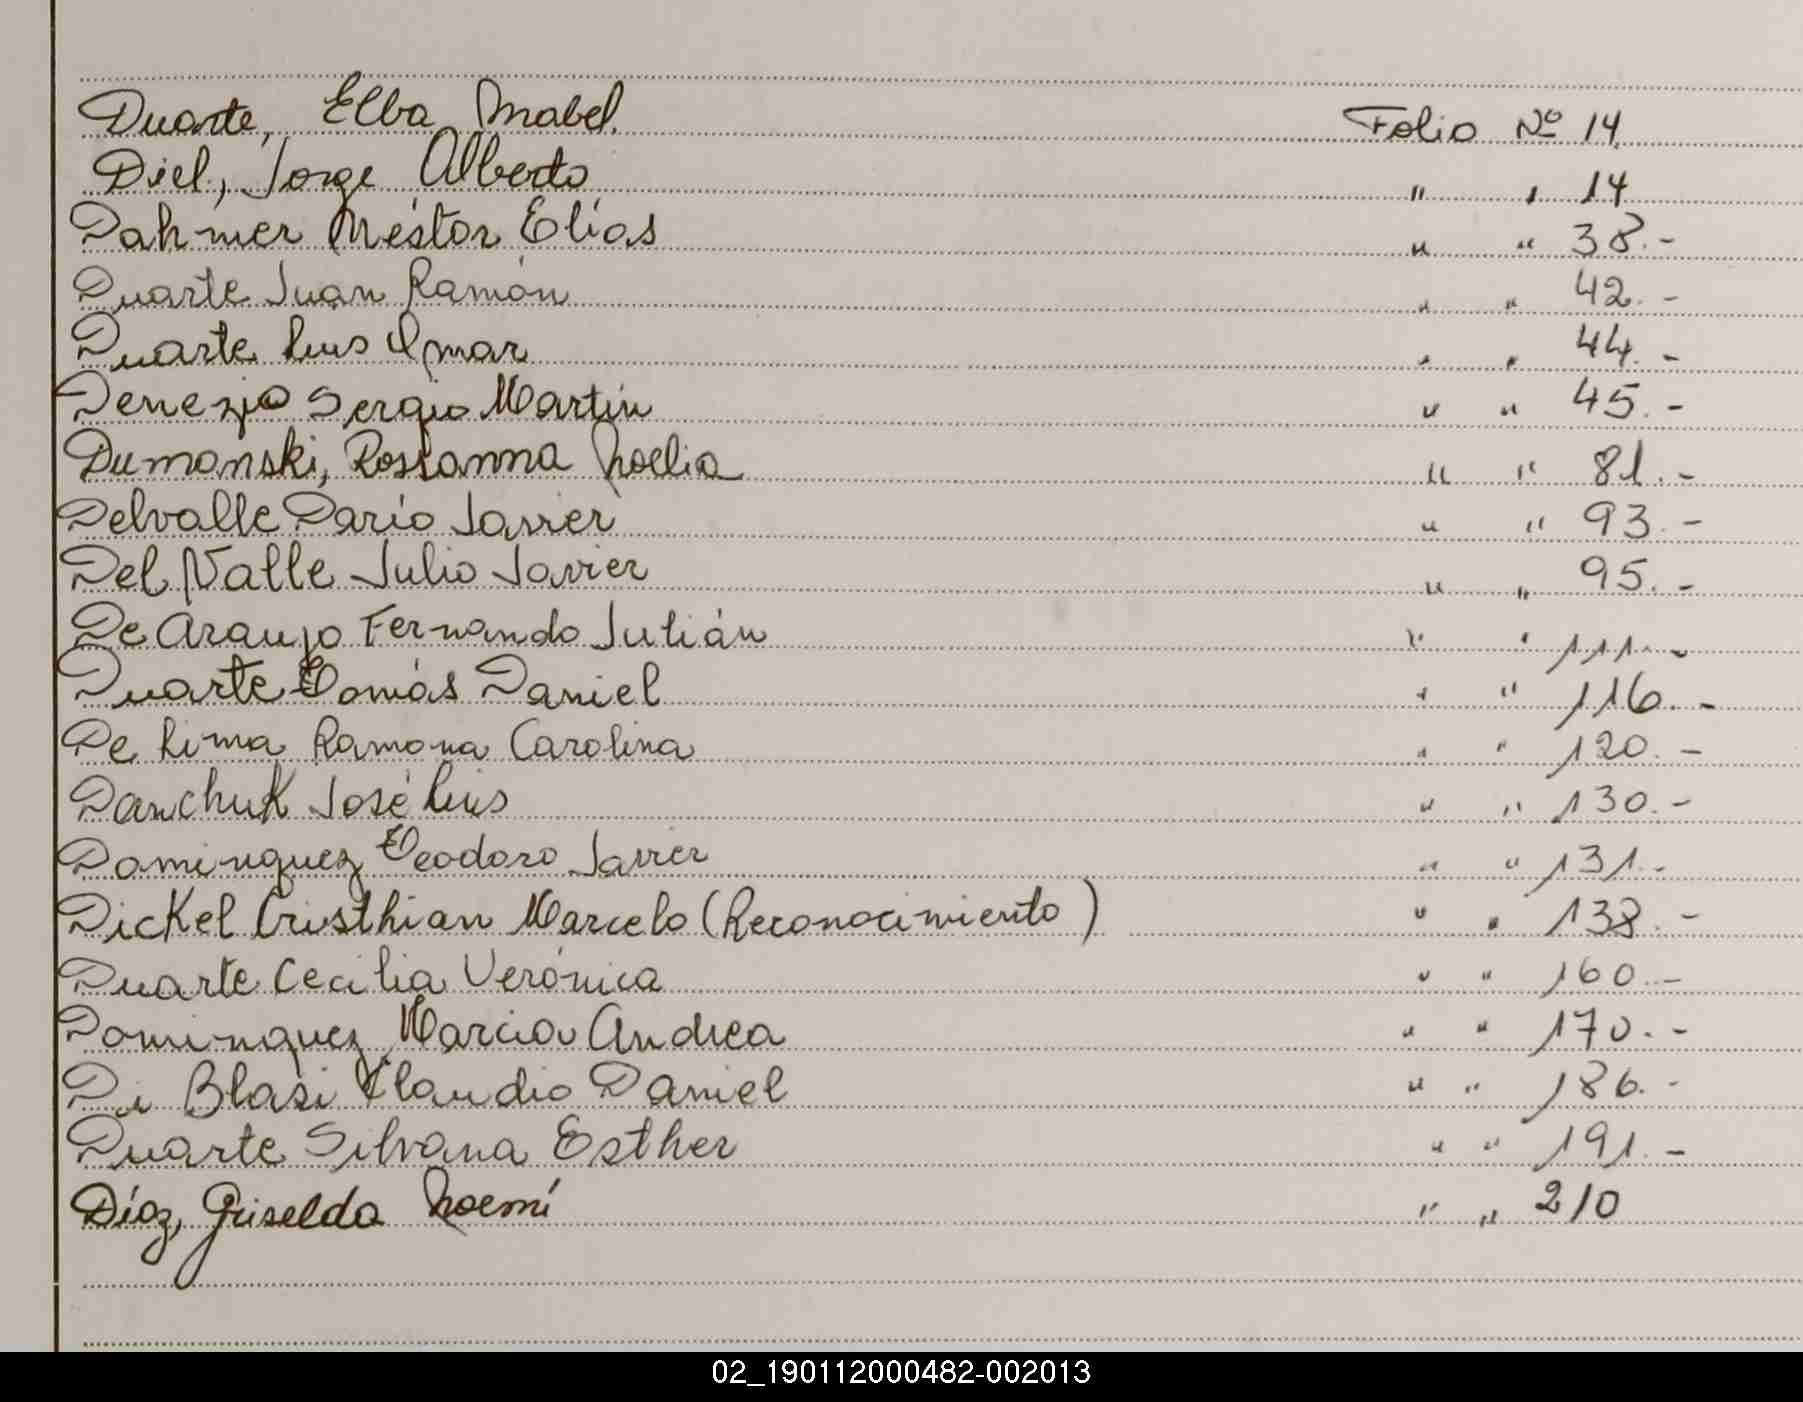 Duarte, Elba Mabel. Folio Nº 14.
Diel, Jorge Alberto " " 14
Dahmer Néstor Elías " " 38.-
Duarte Juan Ramón " " 42.-
Duarte Luis Omar " " 44.-
Denezio Sergio Martín " " 45.-
Dumanski, Rossanna Noelia " " 81.-
Delvalle Darío Javier " " 93.-
Del Valle Julio Javier " " 95.-
De Araujo Fernando Julián " " 111.-
Duarte Tomás Daniel " " 116.-
De Lima Ramona Carolina " " 120.-
Danchuk José Luis " " 130.-
Dominguez Teodoro Javier " " 131.-
Dickel Cristhian Marcelo (Reconocimiento) " " 138.-
Duarte Cecilia Verónica " " 160.-
Dominguez Marcia Andrea " " 170.-
Di Blasi Claudio Daniel " " 186.-
Duarte Silvana Esther " " 191.-
Díaz, Griselda Noemí " " 210
02_190112000482-002013